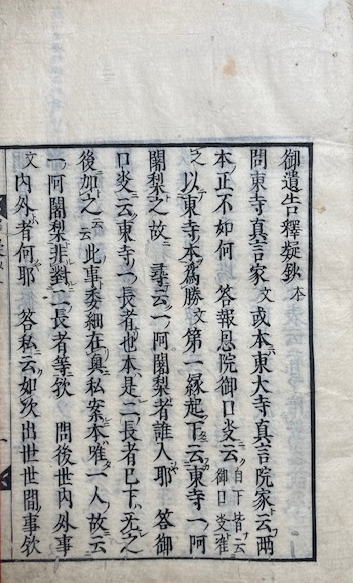 御遺告釋疑鈔 本
問東寺真言家文或本東大寺真言院家云兩
本正不如何 答報恩院御口决云自下皆云御口决
之以東寺本爲勝文第一縁起下云東寺一阿
闍梨之故 尋云一阿闍梨者誰人耶 答御
口决云東寺一長者也本是一長者已下无之
後加之云云此事委細在奥私案本唯一人故云
一阿闍梨非對二長者等欤 問後世内外事
文内外者何耶 答私云如次出世世間事欤